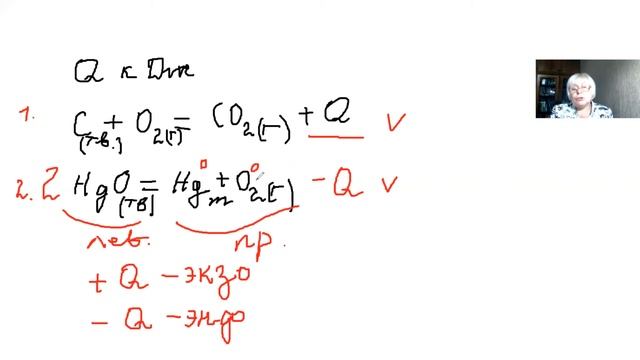 Q к Дж
1. C(тв.) + O2(г) = CO2(г) + Q V
2. 2HgO(тв) = Hg⁰m + O⁰2(г) - Q V
лев. пр.
+ Q - экзо
- Q - эндо